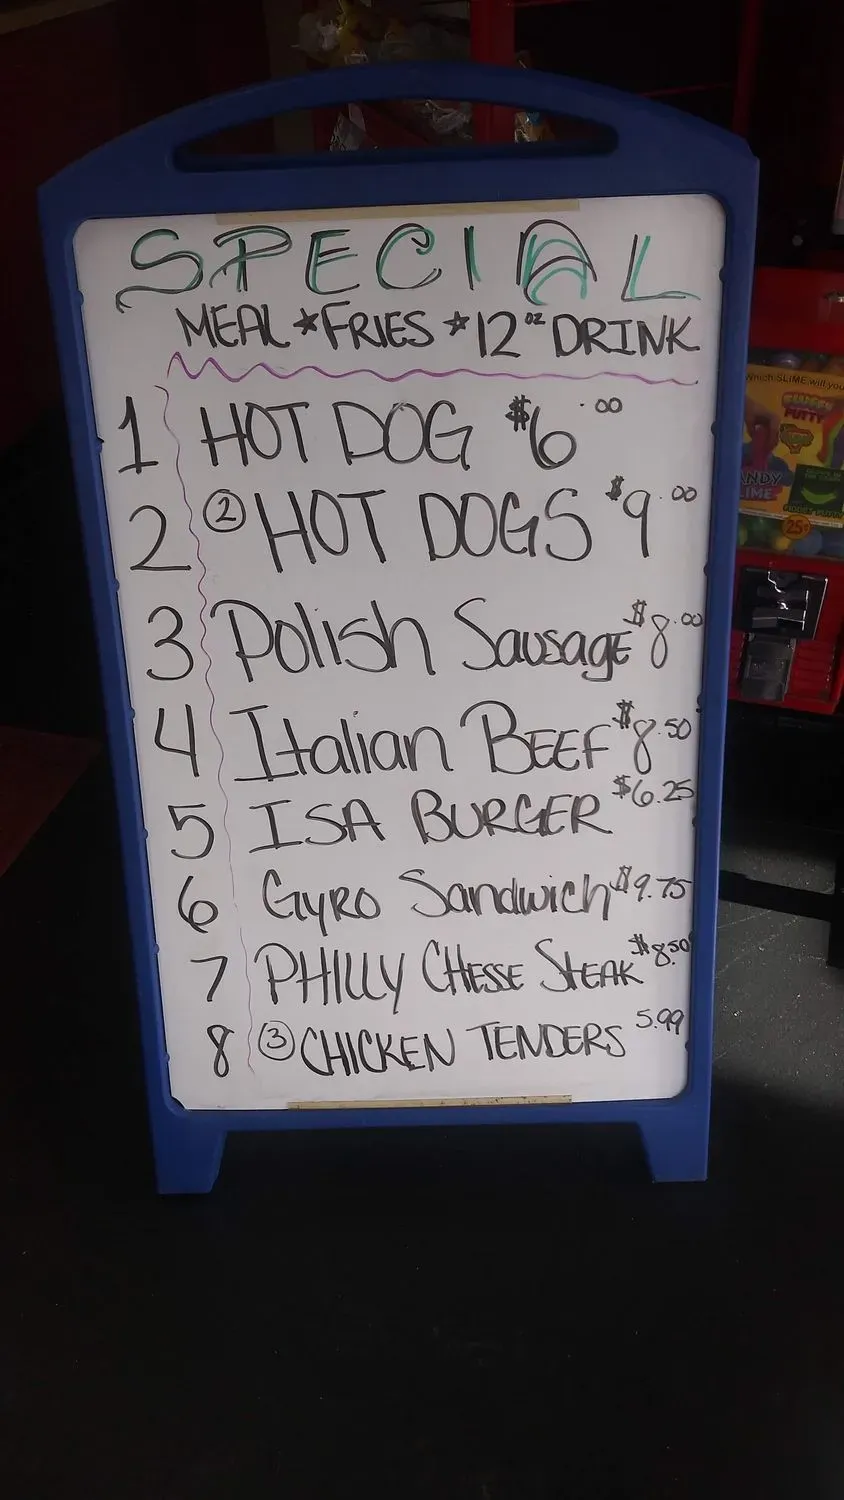 SPECIAL
MEAL *FRIES *12oz DRINK
1 HOT DOG $6.00
2 ② HOT DOGS $9.00
3 Polish Sausage $8.00
4 Italian BEEF $8.50
5 ISA BURGER $6.25
6 Gyro Sandwich $9.75
7 PHILLY CHESSE STEAK $8.50
8 ③ CHICKEN TENDERS 5.99
Which SLIME will you
PUTTY
ANDY
LIME
25¢